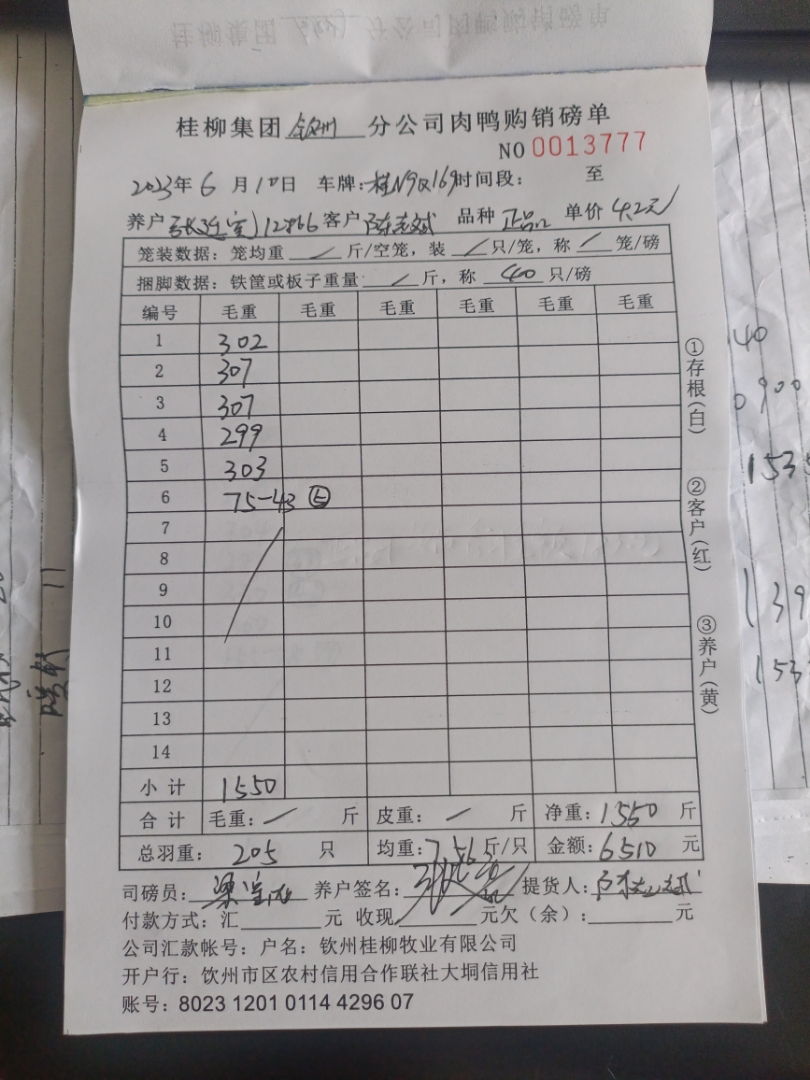 桂柳集团 钦州 分公司肉鸭购销磅单
NO 0013777
2023年 6 月 10日 车牌: 桂N9Q169 时间段: 至
养户 12866 客户 陈志斌 品种 正品 单价 4.2元
笼装数据: 笼均重 / 斤/空笼, 装 / 只/笼, 称 / 笼/磅
捆脚数据: 铁筐或板子重量 / 斤, 称 40 只/磅
编号 毛重 毛重 毛重 毛重 毛重 毛重
1 302
2 307
3 307
4 299
5 303
6 75-43 ⑤
7
8
9
10
11
12
13
14
小 计 1550
合 计 毛重: / 斤 皮重: / 斤 净重: 1550 斤
总羽重: 205 只 均重: 7.56 斤/只 金额: 6510 元
司磅员: 养户签名: 提货人: 陈志斌
付款方式: 汇 元 收现 元欠(余): 元
公司汇款帐号: 户名: 钦州桂柳牧业有限公司
开户行: 钦州市区农村信用合作联社大垌信用社
账号: 8023 1201 0114 4296 07
①存根(白)
②客户(红)
③养户(黄)
40
0900
153
139
153